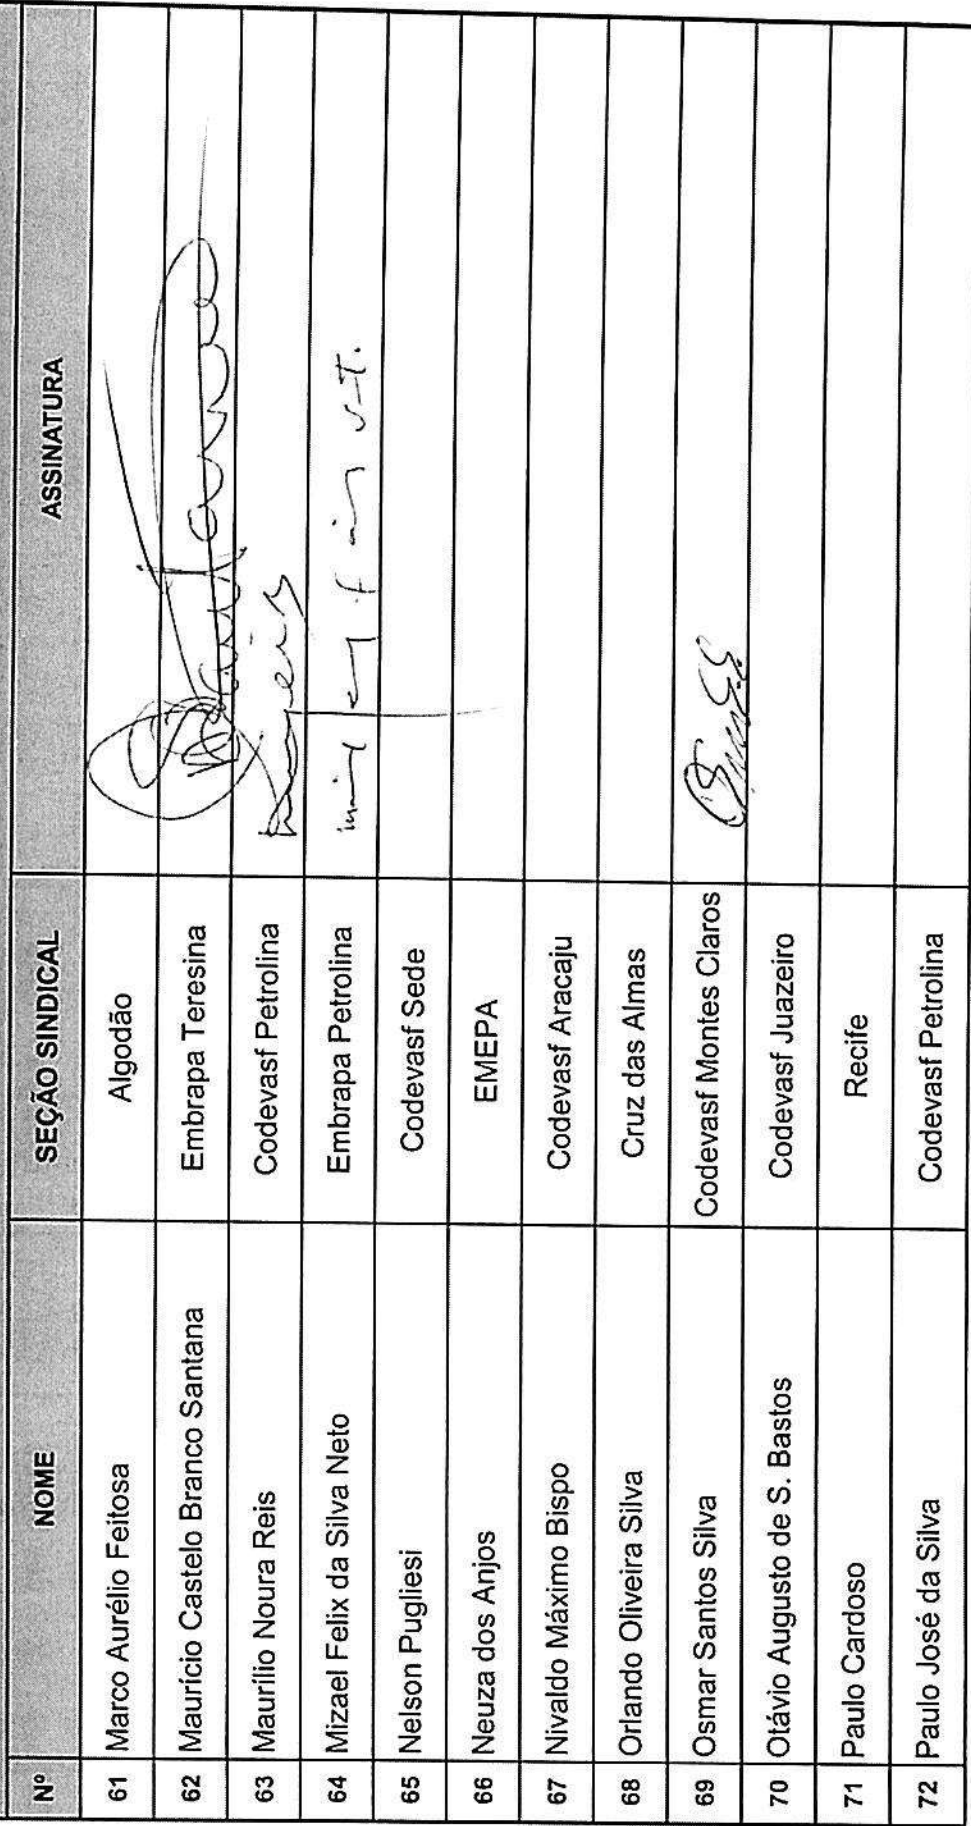 Nº NOME SEÇÃO SINDICAL ASSINATURA
61 Marco Aurélio Feitosa Algodão
62 Maurício Castelo Branco Santana Embrapa Teresina
63 Maurílio Noura Reis Codevasf Petrolina
64 Mizael Felix da Silva Neto Embrapa Petrolina
65 Nelson Pugliesi Codevasf Sede
66 Neuza dos Anjos EMEPA
67 Nivaldo Máximo Bispo Codevasf Aracaju
68 Orlando Oliveira Silva Cruz das Almas
69 Osmar Santos Silva Codevasf Montes Claros
70 Otávio Augusto de S. Bastos Codevasf Juazeiro
71 Paulo Cardoso Recife
72 Paulo José da Silva Codevasf Petrolina